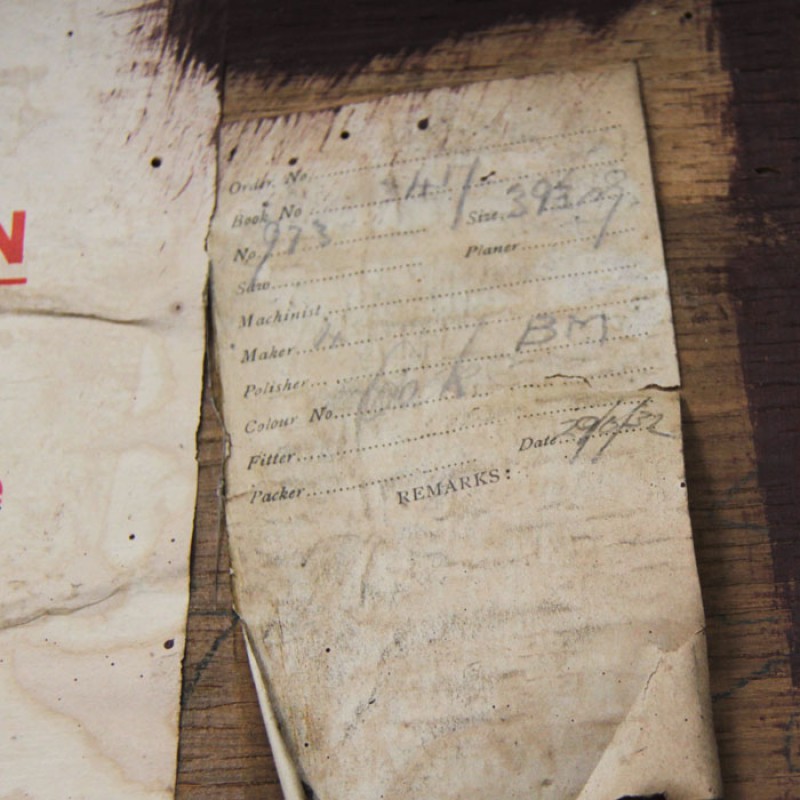 N
Order. No.
Book No
Size
No. 973
Planer
Saw
Machinist
Maker 4
BM
Polisher
Colour No.
Fitter
Date 29/6/32
Packer
REMARKS: